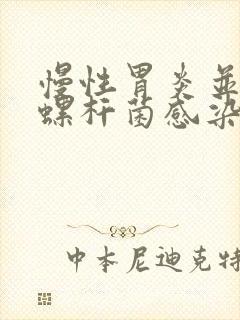 慢性胃炎並
螺杆菌感染
中本尼迪克特